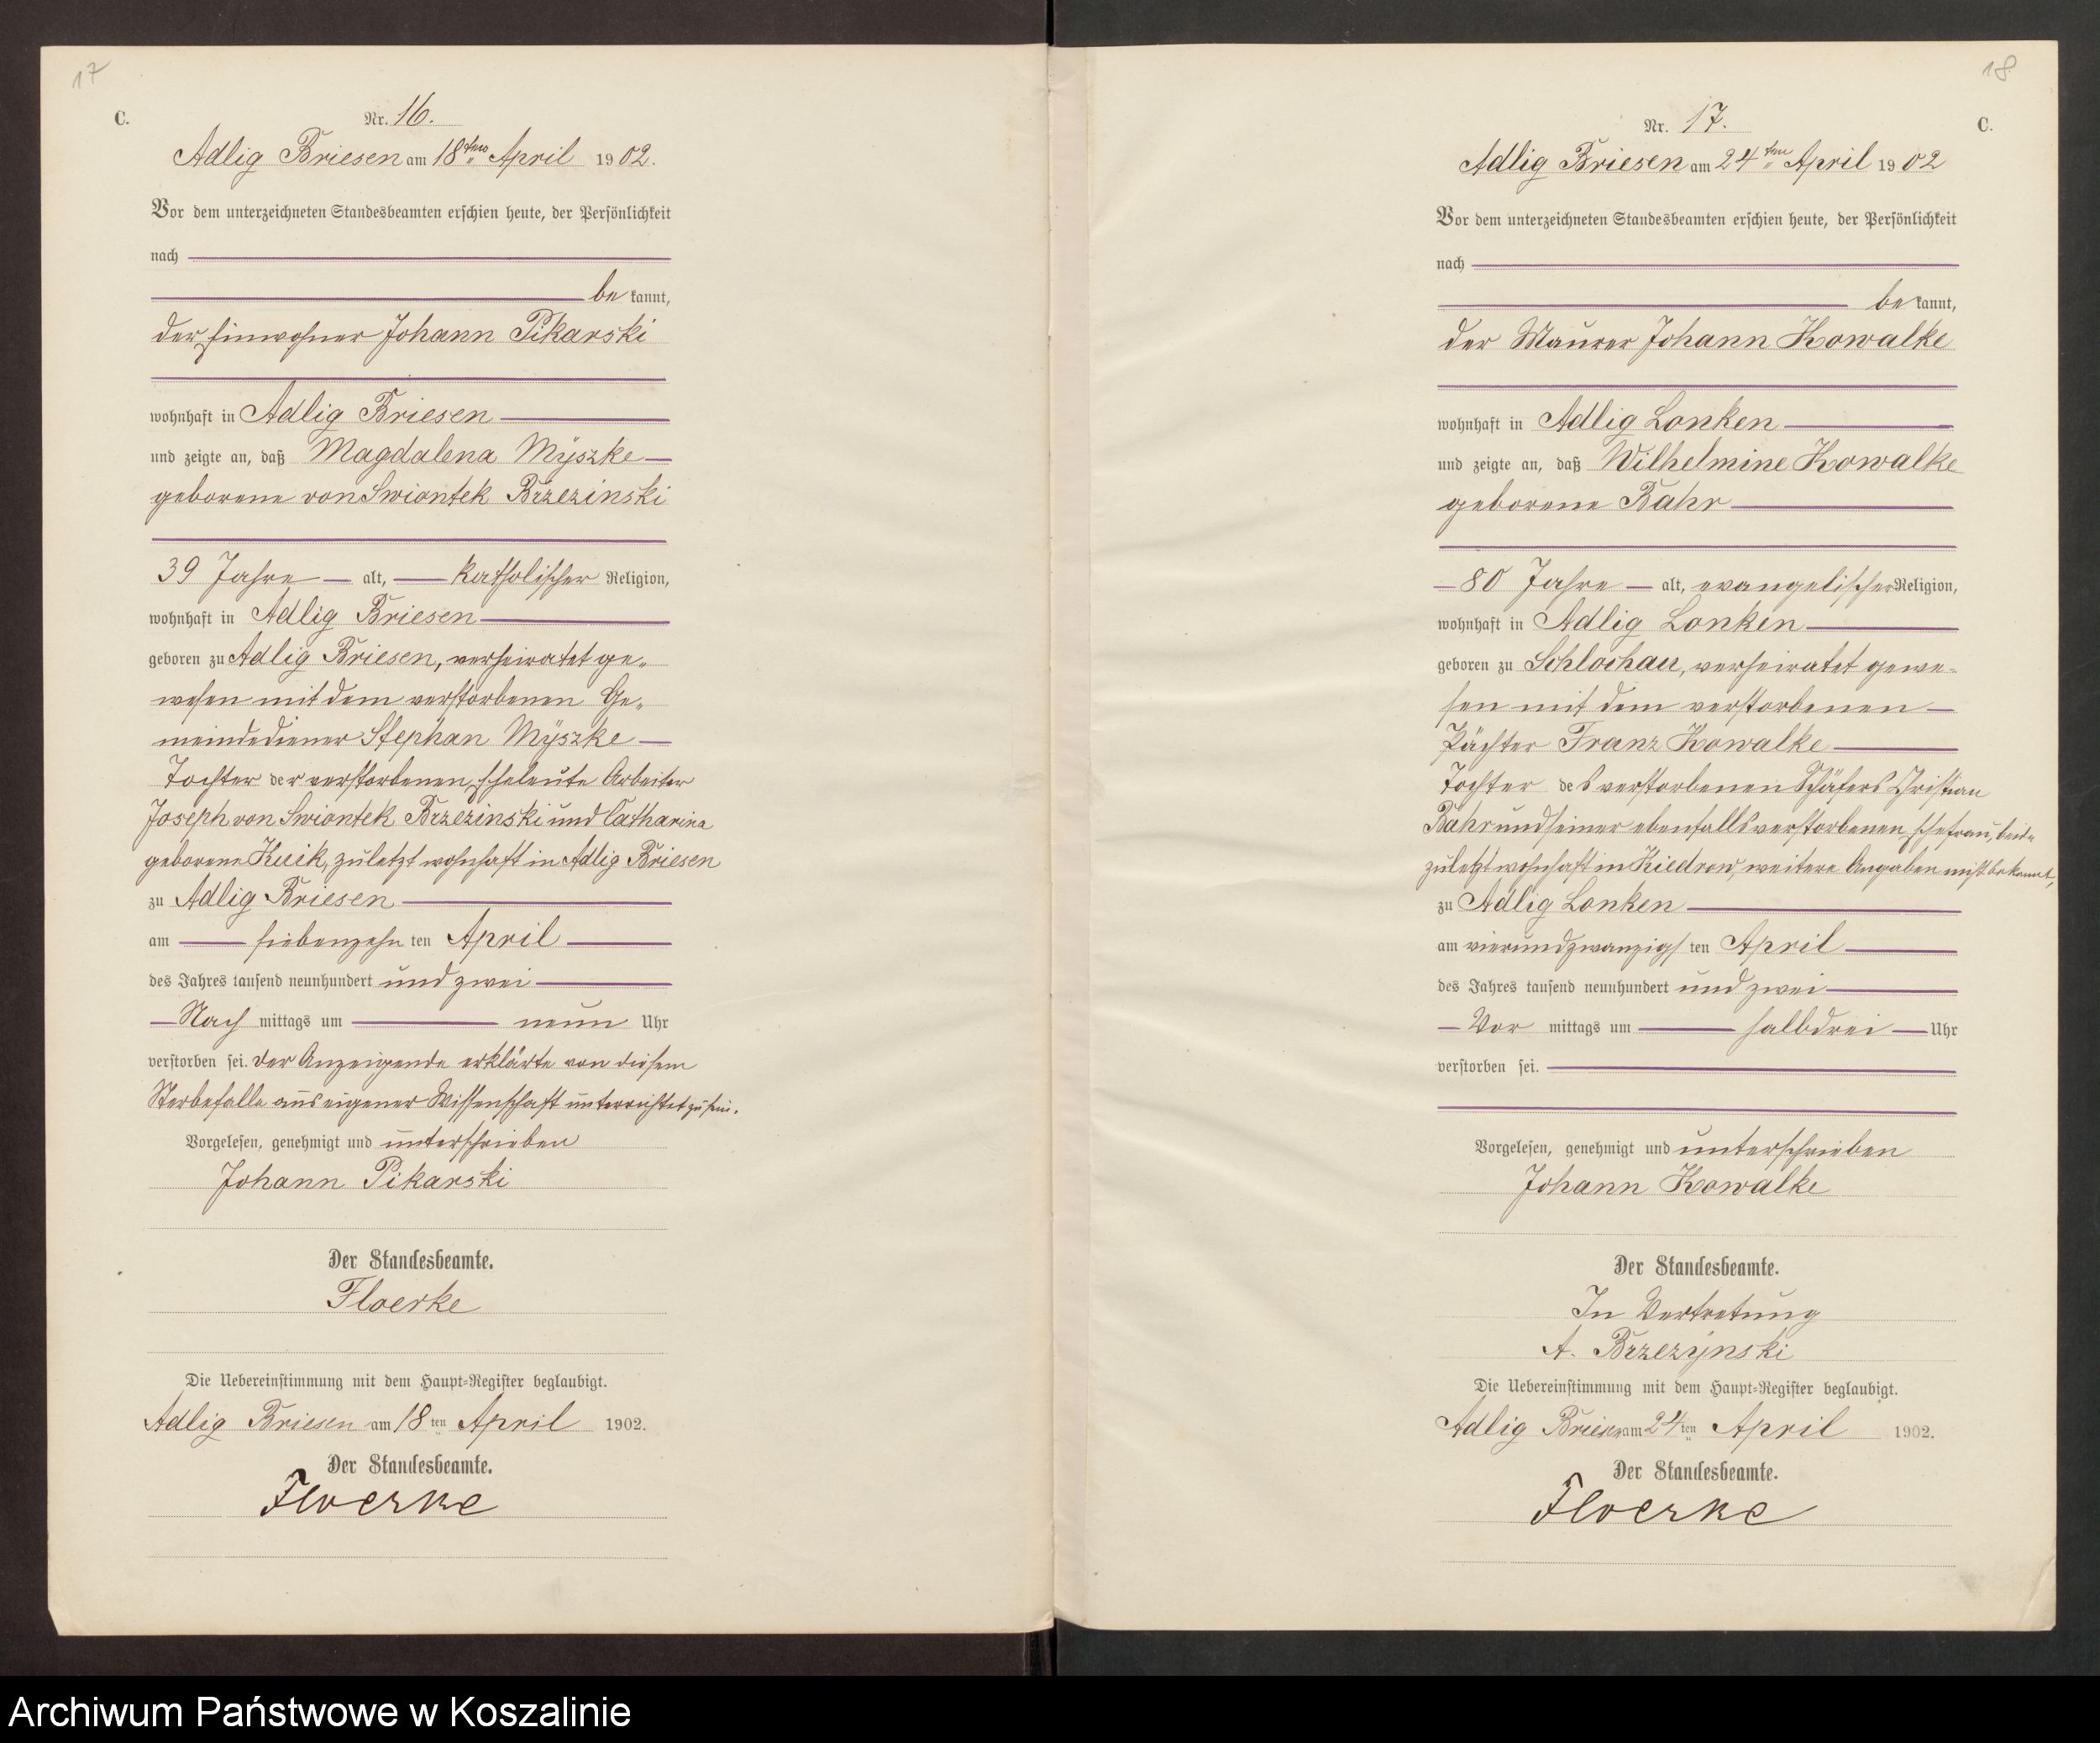 17
C.
Nr. 16.
Adlig Briesen am 18ten April 1902.
Vor dem unterzeichneten Standesbeamten erschien heute, der Persönlichkeit
nach
be kannt,
der Einwohner Johann Pikarski
wohnhaft in Adlig Briesen
und zeigte an, daß Magdalena Myszke
geborene von Swiontek Brzezinski
39 Jahre alt, katholischer Religion,
wohnhaft in Adlig Briesen
geboren zu Adlig Briesen, verheiratet ge-
wesen mit dem verstorbenen Ge-
meindediener Stephan Myszke
Tochter der verstorbenen Eheleute Arbeiter
Joseph von Swiontek Brzezinski und Catharina
geborene Kuik, zuletzt wohnhaft in Adlig Briesen
zu Adlig Briesen
am siebenzehn ten April
des Jahres tausend neunhundert und zwei
Nach mittags um neun Uhr
verstorben sei. Der Anzeigende erklärte von diesem
Sterbefalle aus eigener Wissenschaft unterrichtet zu sein.
Vorgelesen, genehmigt und unterschrieben
Johann Pikarski
Der Standesbeamte.
Floerke
Die Uebereinstimmung mit dem Haupt-Register beglaubigt.
Adlig Briesen am 18 ten April 1902.
Der Standesbeamte.
Floerke
18
C.
Nr. 17.
Adlig Briesen am 24ten April 1902
Vor dem unterzeichneten Standesbeamten erschien heute, der Persönlichkeit
nach
be kannt,
der Maurer Johann Kowalke
wohnhaft in Adlig Lonken
und zeigte an, daß Wilhelmine Kowalke
geborene Bahr
80 Jahre alt, evangelischer Religion,
wohnhaft in Adlig Lonken
geboren zu Schlochau, verheiratet gewe-
sen mit dem verstorbenen
Pächter Franz Kowalke
Tochter des verstorbenen Schäfers Christian
Bahr und seiner ebenfalls verstorbenen Ehefrau, beide
zuletzt wohnhaft in Kiedrow, weitere Angaben nicht bekannt,
zu Adlig Lonken
am vierundzwanzigs ten April
des Jahres tausend neunhundert und zwei
Vor mittags um halbdrei Uhr
verstorben sei.
Vorgelesen, genehmigt und unterschrieben
Johann Kowalke
Der Standesbeamte.
In Vertretung
A. Brzezynski
Die Uebereinstimmung mit dem Haupt-Register beglaubigt.
Adlig Briesen am 24 ten April 1902.
Der Standesbeamte.
Floerke
Archiwum Państwowe w Koszalinie